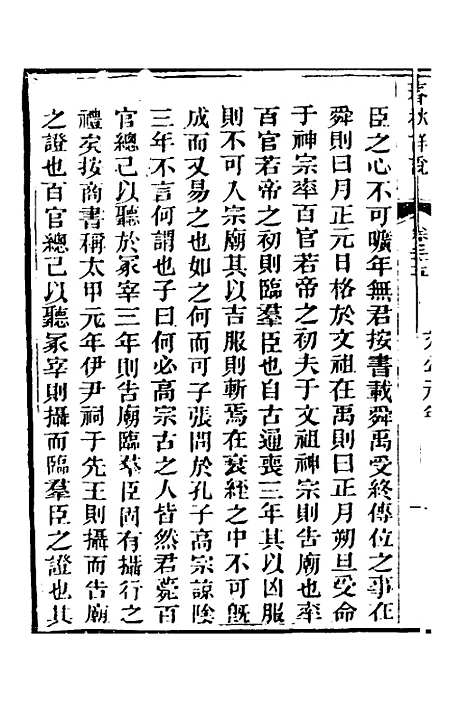 春秋詳說
文公元年
臣之心不可曠年無君按書載舜禹受終傳位之事在
舜則曰月正元日格於文祖在禹則曰正月朔旦受命
于神宗率百官若帝之初夫于文祖神宗則告廟也率
百官若帝之初則臨羣臣也自古通喪三年其以凶服
則不可入宗廟其以吉服則斬焉在衰絰之中不可旣
成而又易之也如之何而可子張問於孔子高宗諒陰
三年不言何謂也子曰何必高宗古之人皆然君薨百
官總己以聽於冢宰三年則告廟臨羣臣固有攝行之
禮矣按商書稱太甲元年伊尹祠于先王則攝而告廟
之證也百官總己以聽冢宰則攝而臨羣臣之證也其